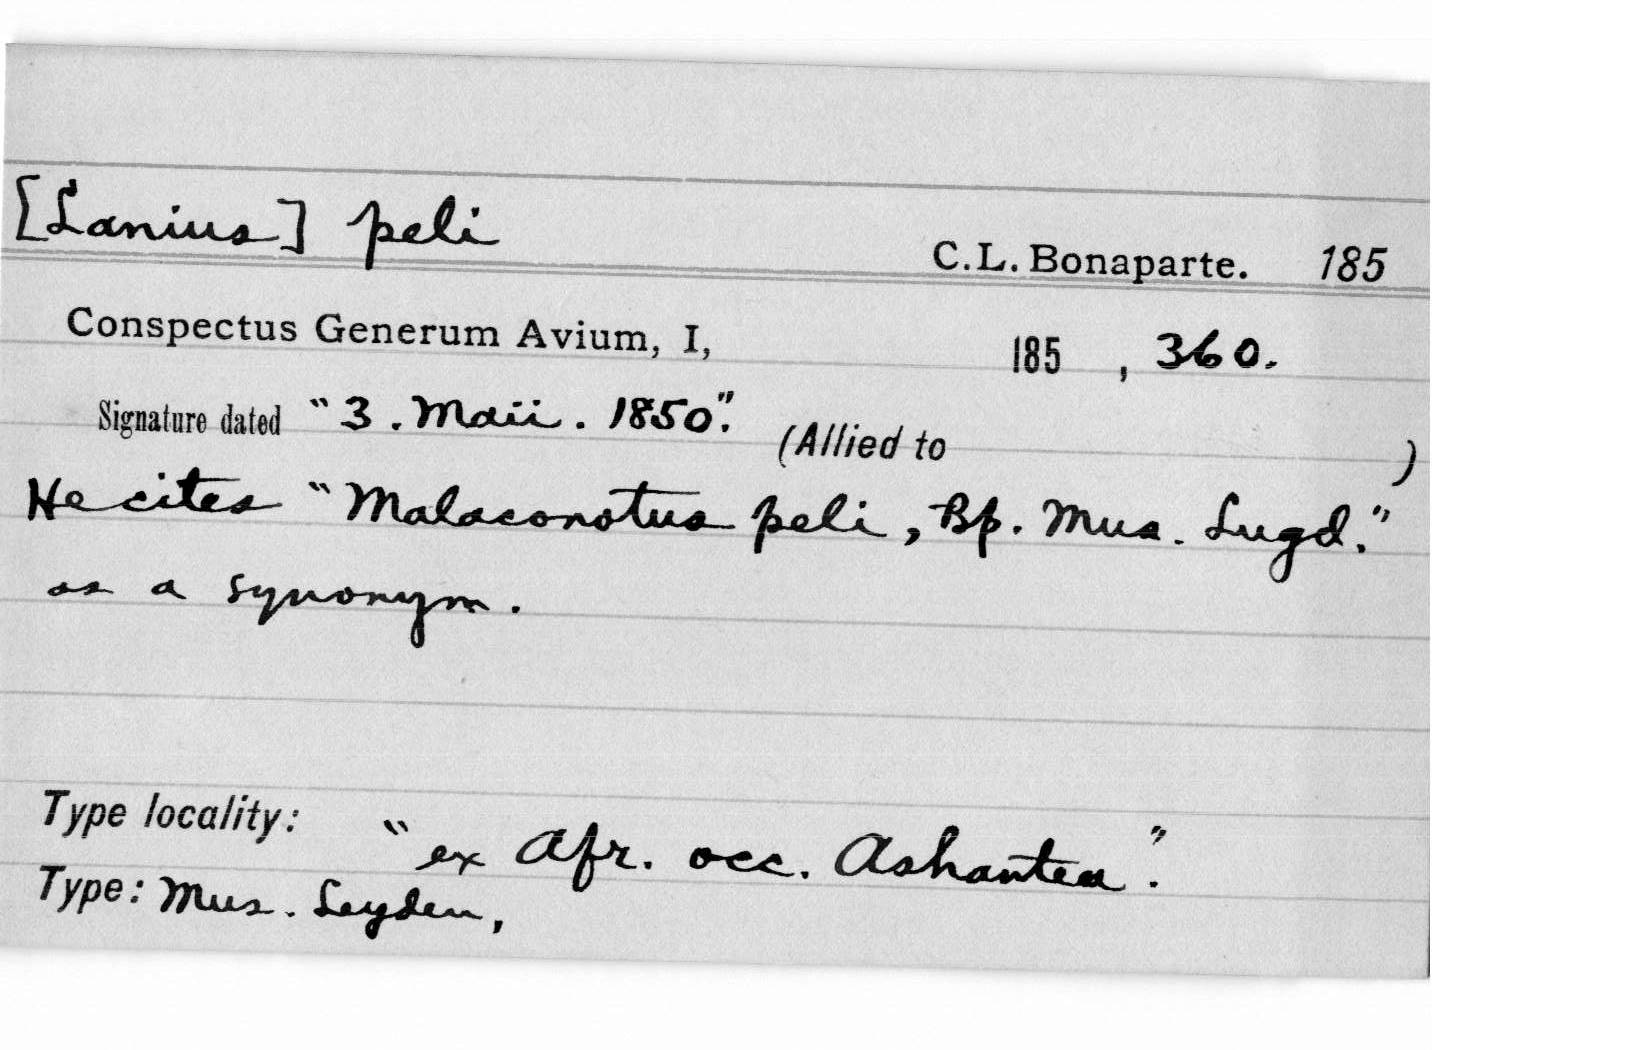 [Lanius] peli
C.L. Bonaparte. 185
Conspectus Generum Avium, I, 185 , 360.
Signature dated "3. Maii. 1850". (Allied to )
He cites "Malaconotus peli, Bp. Mus. Lugd."
as a synonym.
Type locality: "ex Afr. occ. Ashantea".
Type: Mus. Leyden,